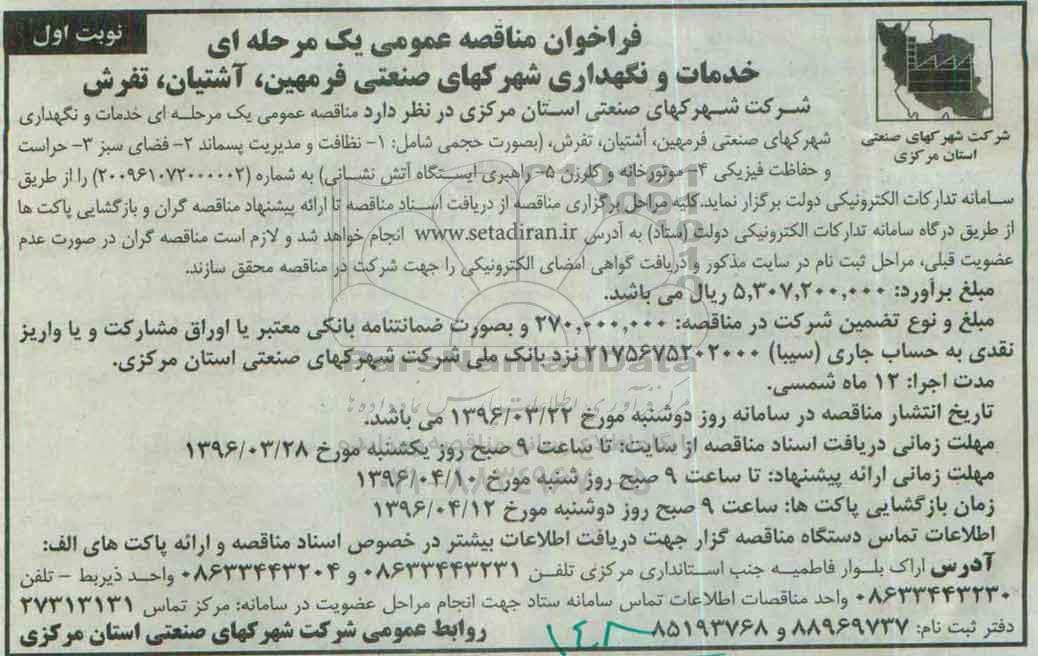 نوبت اول
فراخوان مناقصه عمومی یک مرحله ای
خدمات و نگهداری شهرکهای صنعتی فرمهین، آشتیان، تفرش
شرکت شهرکهای صنعتی
استان مرکزی
شرکت شهرکهای صنعتی استان مرکزی در نظر دارد مناقصه عمومی یک مرحله ای خدمات و نگهداری
شهرکهای صنعتی فرمهین، آشتیان، تفرش، (بصورت حجمی شامل: ۱- نظافت و مدیریت پسماند ۲- فضای سبز ۳- حراست
و حفاظت فیزیکی ۴- موتورخانه و کلرزن ۵- راهبری ایستگاه آتش نشانی) به شماره (۲۰۰۹۶۱۰۷۲۰۰۰۰۰۲) را از طریق
سامانه تدارکات الکترونیکی دولت برگزار نماید.کلیه مراحل برگزاری مناقصه از دریافت اسناد مناقصه تا ارائه پیشنهاد مناقصه گران و بازگشایی پاکت ها
از طریق درگاه سامانه تدارکات الکترونیکی دولت (ستاد) به آدرس www.setadiran.ir انجام خواهد شد و لازم است مناقصه گران در صورت عدم
عضویت قبلی، مراحل ثبت نام در سایت مذکور و دریافت گواهی امضای الکترونیکی را جهت شرکت در مناقصه محقق سازند.
مبلغ برآورد: ۵,۳۰۷,۲۰۰,۰۰۰ ریال می باشد.
مبلغ و نوع تضمین شرکت در مناقصه: ۲۷۰,۰۰۰,۰۰۰ و بصورت ضمانتنامه بانکی معتبر یا اوراق مشارکت و یا واریز
نقدی به حساب جاری (سیبا) ۲۱۷۵۶۷۵۲۰۲۰۰۰ نزد بانک ملی شرکت شهرکهای صنعتی استان مرکزی.
مدت اجرا: ۱۲ ماه شمسی.
تاریخ انتشار مناقصه در سامانه روز دوشنبه مورخ ۱۳۹۶/۰۳/۲۲ می باشد.
مهلت زمانی دریافت اسناد مناقصه از سایت: تا ساعت ۹ صبح روز یکشنبه مورخ ۱۳۹۶/۰۳/۲۸
مهلت زمانی ارائه پیشنهاد: تا ساعت ۹ صبح روز شنبه مورخ ۱۳۹۶/۰۴/۱۰
زمان بازگشایی پاکت ها: ساعت ۹ صبح روز دوشنبه مورخ ۱۳۹۶/۰۴/۱۲
اطلاعات تماس دستگاه مناقصه گزار جهت دریافت اطلاعات بیشتر در خصوص اسناد مناقصه و ارائه پاکت های الف:
آدرس اراک بلوار فاطمیه جنب استانداری مرکزی تلفن ۰۸۶۳۳۴۴۳۲۳۱ و ۰۸۶۳۳۴۴۳۲۰۴ واحد ذیربط - تلفن
۰۸۶۳۳۴۴۳۲۳۰ واحد مناقصات اطلاعات تماس سامانه ستاد جهت انجام مراحل عضویت در سامانه: مرکز تماس ۲۷۳۱۳۱۳۱
دفتر ثبت نام: ۸۸۹۶۹۷۳۷ و ۸۵۱۹۳۷۶۸
روابط عمومی شرکت شهرکهای صنعتی استان مرکزی
ParsNamadData